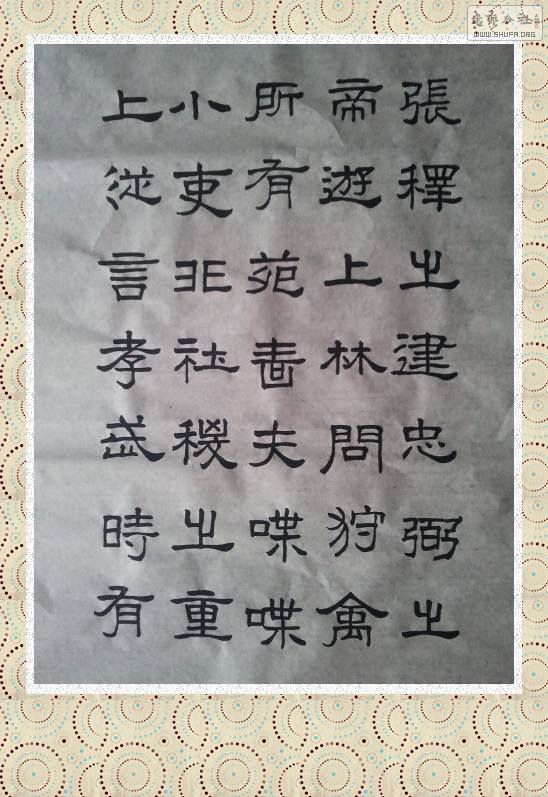 張釋之建忠弼之
帝遊上林問狩禽
所有苑嗇夫喋喋
小吏非社稷之重
上從言孝武時有
WWW.SHUFA.ORG